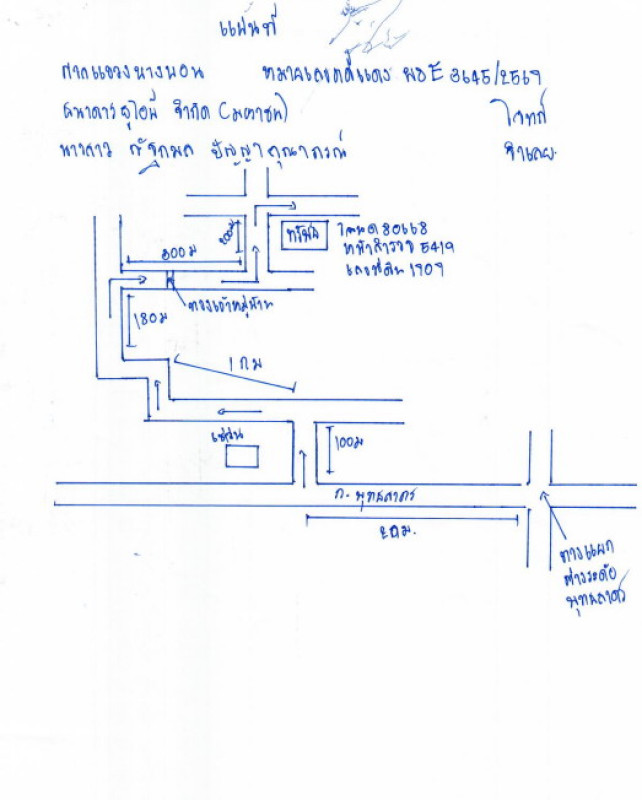 แผนที่
ศาลแขวงบางบอน หมายเลขคดีแดง ผบE 3645/2569
ธนาคารยูโอบี จำกัด (มหาชน) โจทก์
นางสาว ณัฐกมล ปัญญาคุณาภรณ์ จำเลย
200ม
ทรัพย์
โฉนด 80668
หน้าสำรวจ 5419
เลขที่ดิน 1707
800ม
ทางเข้าหมู่บ้าน
180ม
1 กม
เซเว่น
100ม
ถ. พุทธสาคร
2 กม.
ทางแยก
ต่างระดับ
พุทธสาคร